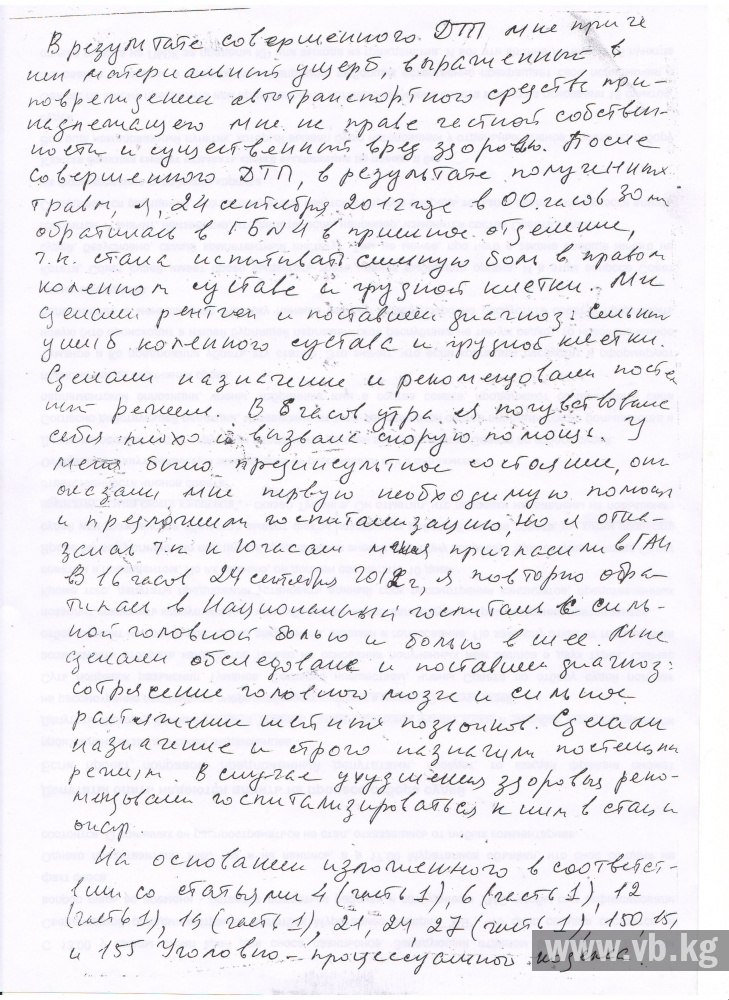 В результате совершенного ДТП мне приче
нен материальный ущерб, выраженный в
повреждении автотранспортного средства при-
надлежащего мне на праве частной собствен-
ности и существенный вред здоровью. После
совершенного ДТП, в результате полученных
травм, я, 24 сентября 2012 года в 00 часов 30 м
обратилась в ГБ№4 в приемное отделение,
т.к. стала испытывать сильную боль в правом
коленном суставе и грудной клетки. Мне
сделали рентген и поставили диагноз: сильный
ушиб коленного сустава и грудной клетки.
Сделали назначение и рекомендовали посте
ный режим. В 8 часов утра я почувствовала
себя плохо и вызвала скорую помощь. У
меня было прединсультное состояние, они
оказали мне первую необходимую помощь
и предложили госпитализацию, но я отка-
залась т.к. к 10 часам меня пригласили в ГАИ
В 16 часов 24 сентября 2012г, я повторно обра-
тилась в Национальный госпиталь с силь-
ной головной болью и болью в шее. Мне
сделали обследование и поставили диагноз:
сотрясение головного мозга и сильное
растяжение шейных позвонков. Сделали
назначение и строго назначили постельный
режим. В случае ухудшения здоровья реко-
мендовали госпитализироваться к ним в стаци
онар.
На основании изложенного в соответст-
вии со статьями 4 (часть 1), 6 (часть 1), 12
(часть 1), 15 (часть 1), 21, 24, 27 (часть 1), 150, 151,
и 155 Уголовно-процессуального кодекса.
www.vb.kg